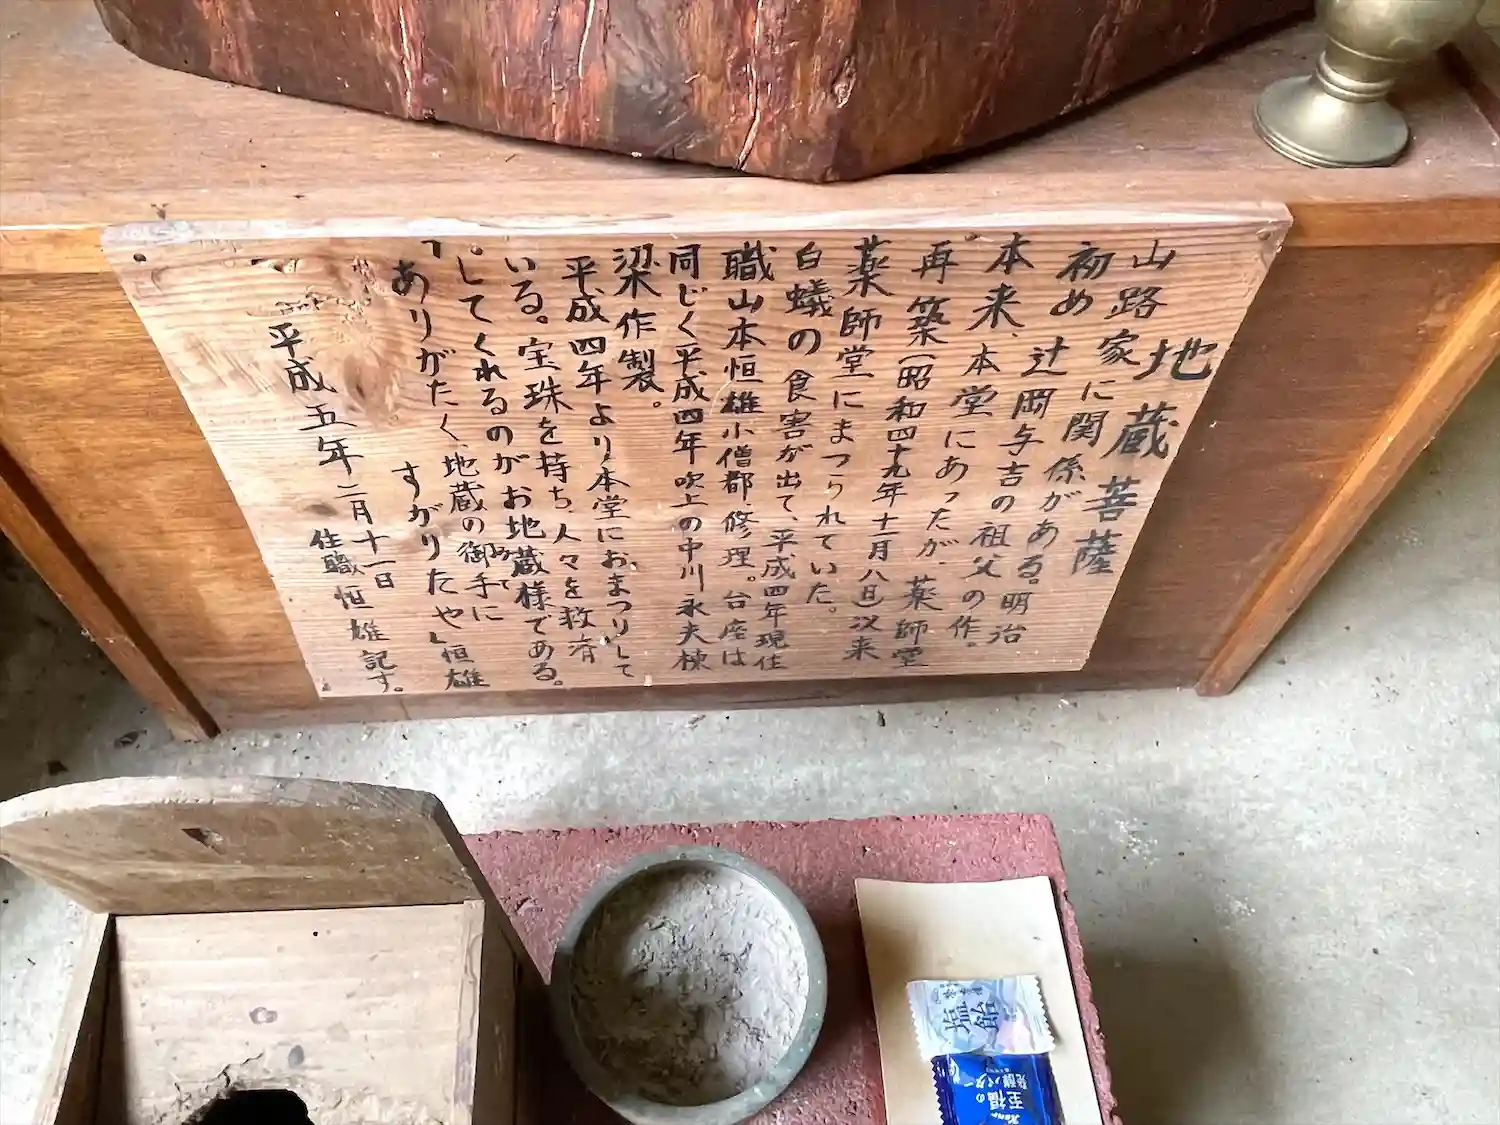 地蔵菩薩
山路家に関係がある。明治
初め 辻岡与吉の祖父の作。
本来、本堂にあったが、薬師堂
再築(昭和四十九年十一月八日)以来
薬師堂にまつられていた。
白蟻の食害が出て、平成四年現住
職山本恒雄小僧都修理。台座は
同じく平成四年吹上の中川永夫棟
梁作製。
平成四年より本堂におまつりして
いる。宝珠を持ち、人々を救済
してくれるのがお地蔵様である。
「ありがたく、地蔵の御手に
すがりたや」恒雄
平成五年二月十一日
住職 恒雄記す。
塩飴
至福の
発酵バター